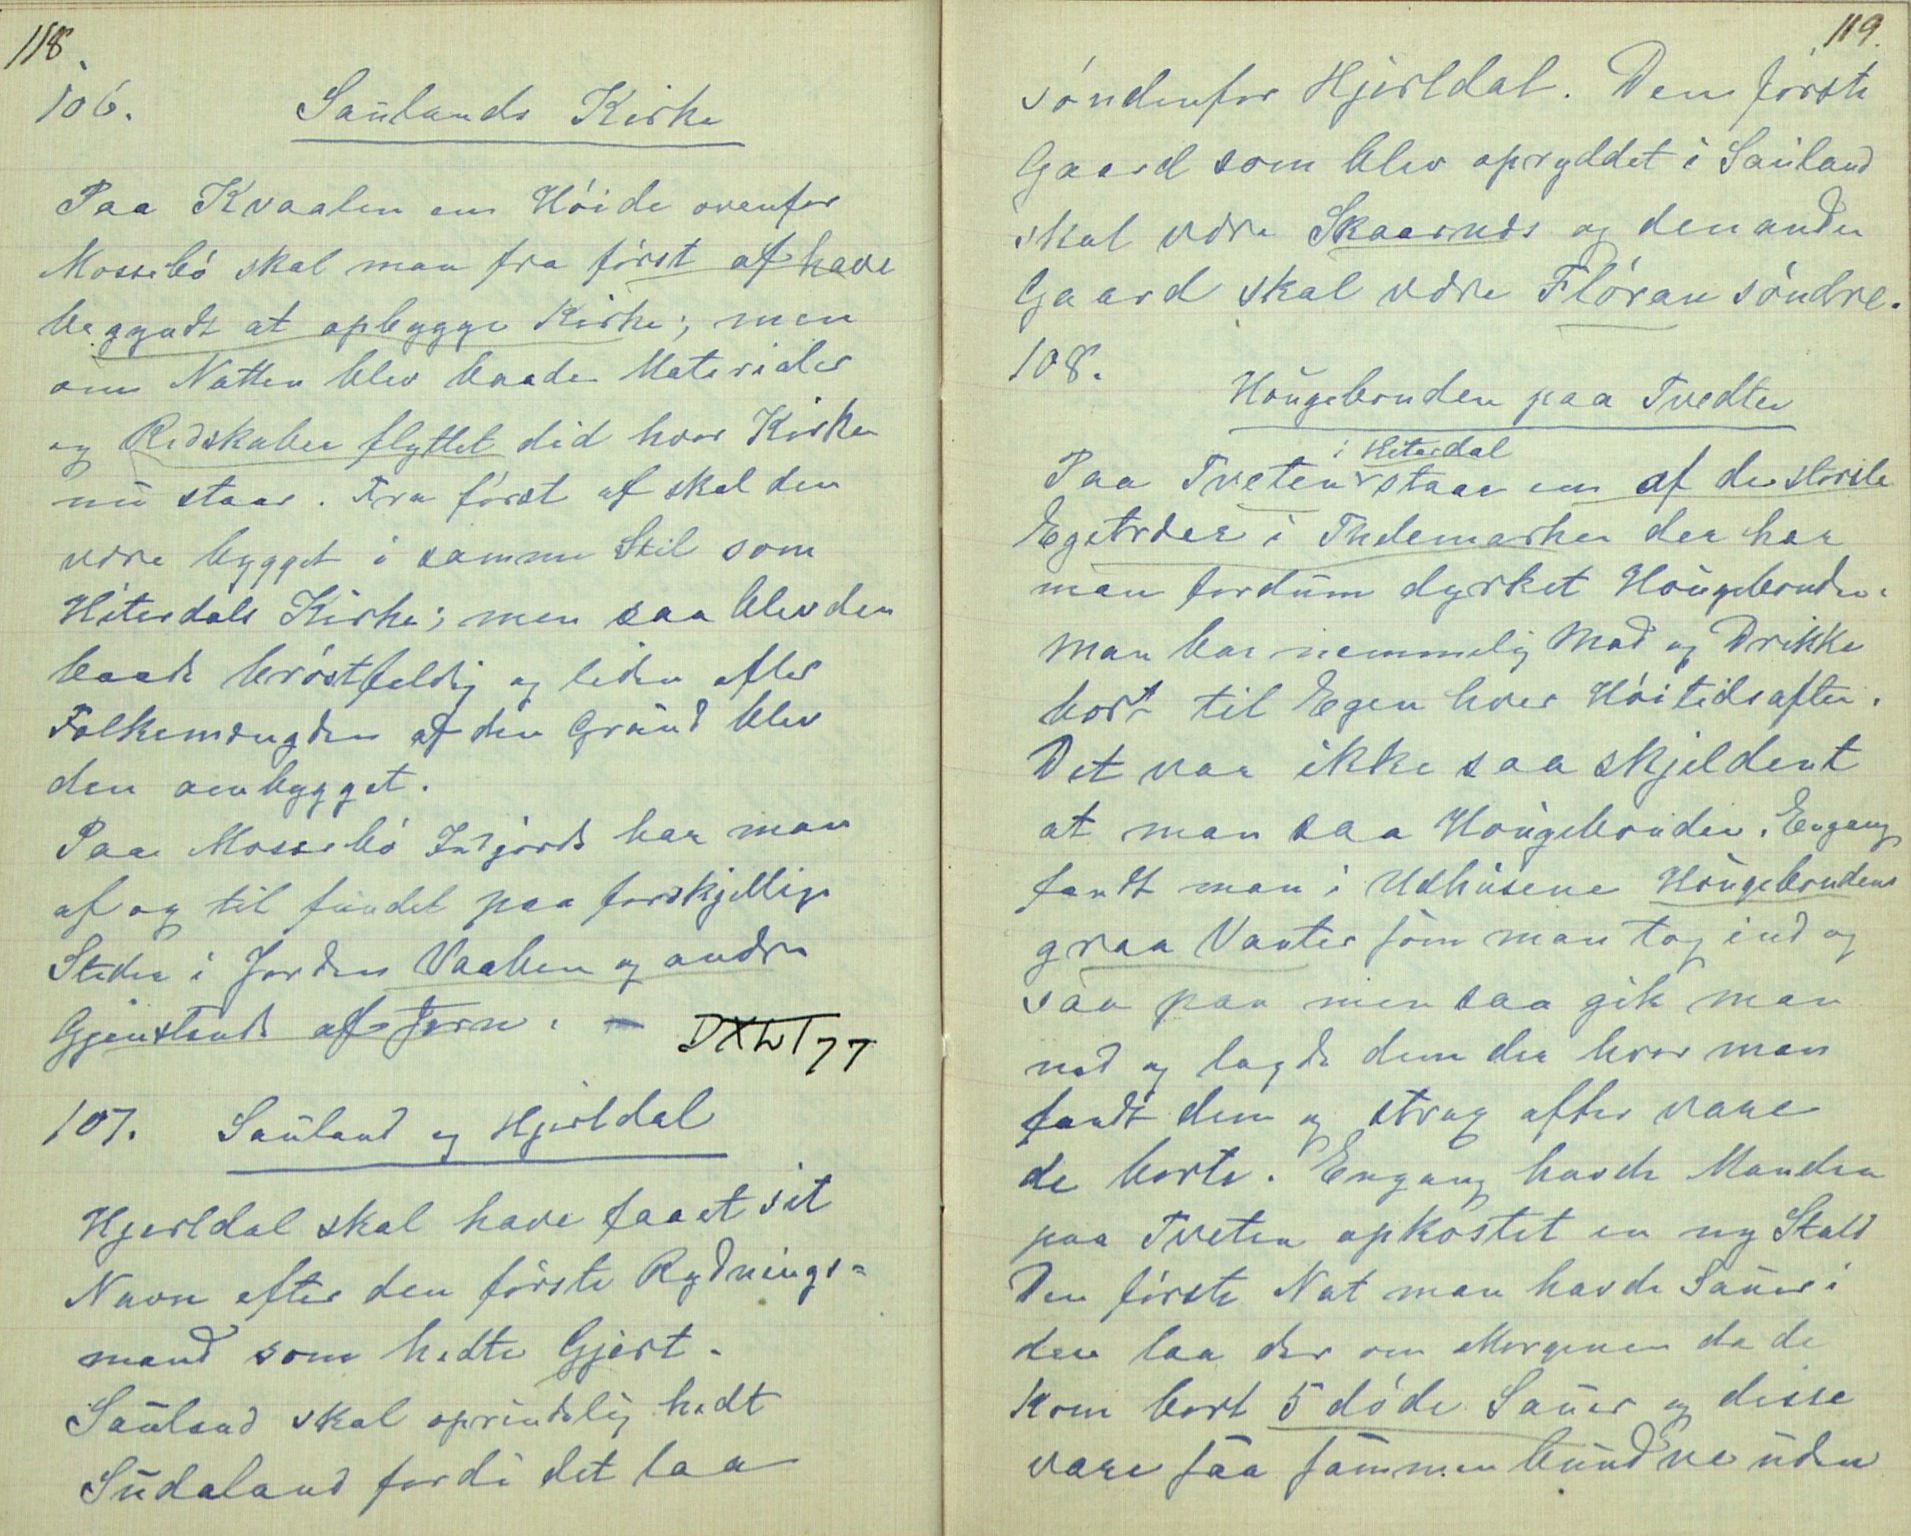 118.
106. Saulands Kirke
Paa Kvaalen en Höide ovenfor
Mossebö skal man fra först af have
begyndt at opbygge Kirke; men
om Natten blev baade Materialer
og Redskaber flyttet did hvor Kirken
nu staar. Fra först af skal den
være bygget i samme Stil som
Hiterdals Kirke; men saa blev den
baade bröstfeldig og liden efter
Folkemængden af den Grund blev
den ombygget.
Paa Mossebö Indjords har man
af og til fundet paa forskjellige
Steder i Jorden Vaaben og andre
Gjenstande af Jern. —
107. Sauland og Hjertdal
Hjertdal skal have faaet sit
Navn efter den förste Rydnings-
mand som hedte Gjert.
Sauland skal oprindelig hedt
Sudaland fordi det laa
119.
söndenfor Hjertdal. Den förste
Gaard som blev opryddet i Sauland
skal være Skaarnæs og den anden
Gaard skal være Flöran söndre.
108.
Hougebonden paa Tvedten
i Hiterdal
Paa Tveten staar en af de störste
Egetræer i Thelemarken der har
man fordum dyrket Hougebonden.
Man bar nemmelig Mad og Drikke
bort til Egen hver Höitidsaften.
Det var ikke saa skjeldent
at man saa Hougebonden. Engang
fandt man i Udhusene Hougebondens
graa Vanter som man tog ind og
saa paa men saa gik man
ned og lagde dem der hvor man
fandt dem og strax efter vare
de borte. Engang havde Manden
paa Tveten opkostet en ny Stald
Den förste Nat man havde Sauer i
den laa der om Morgenen da de
kom bort 5 döde Sauer og disse
vare saa sammenbundne uden